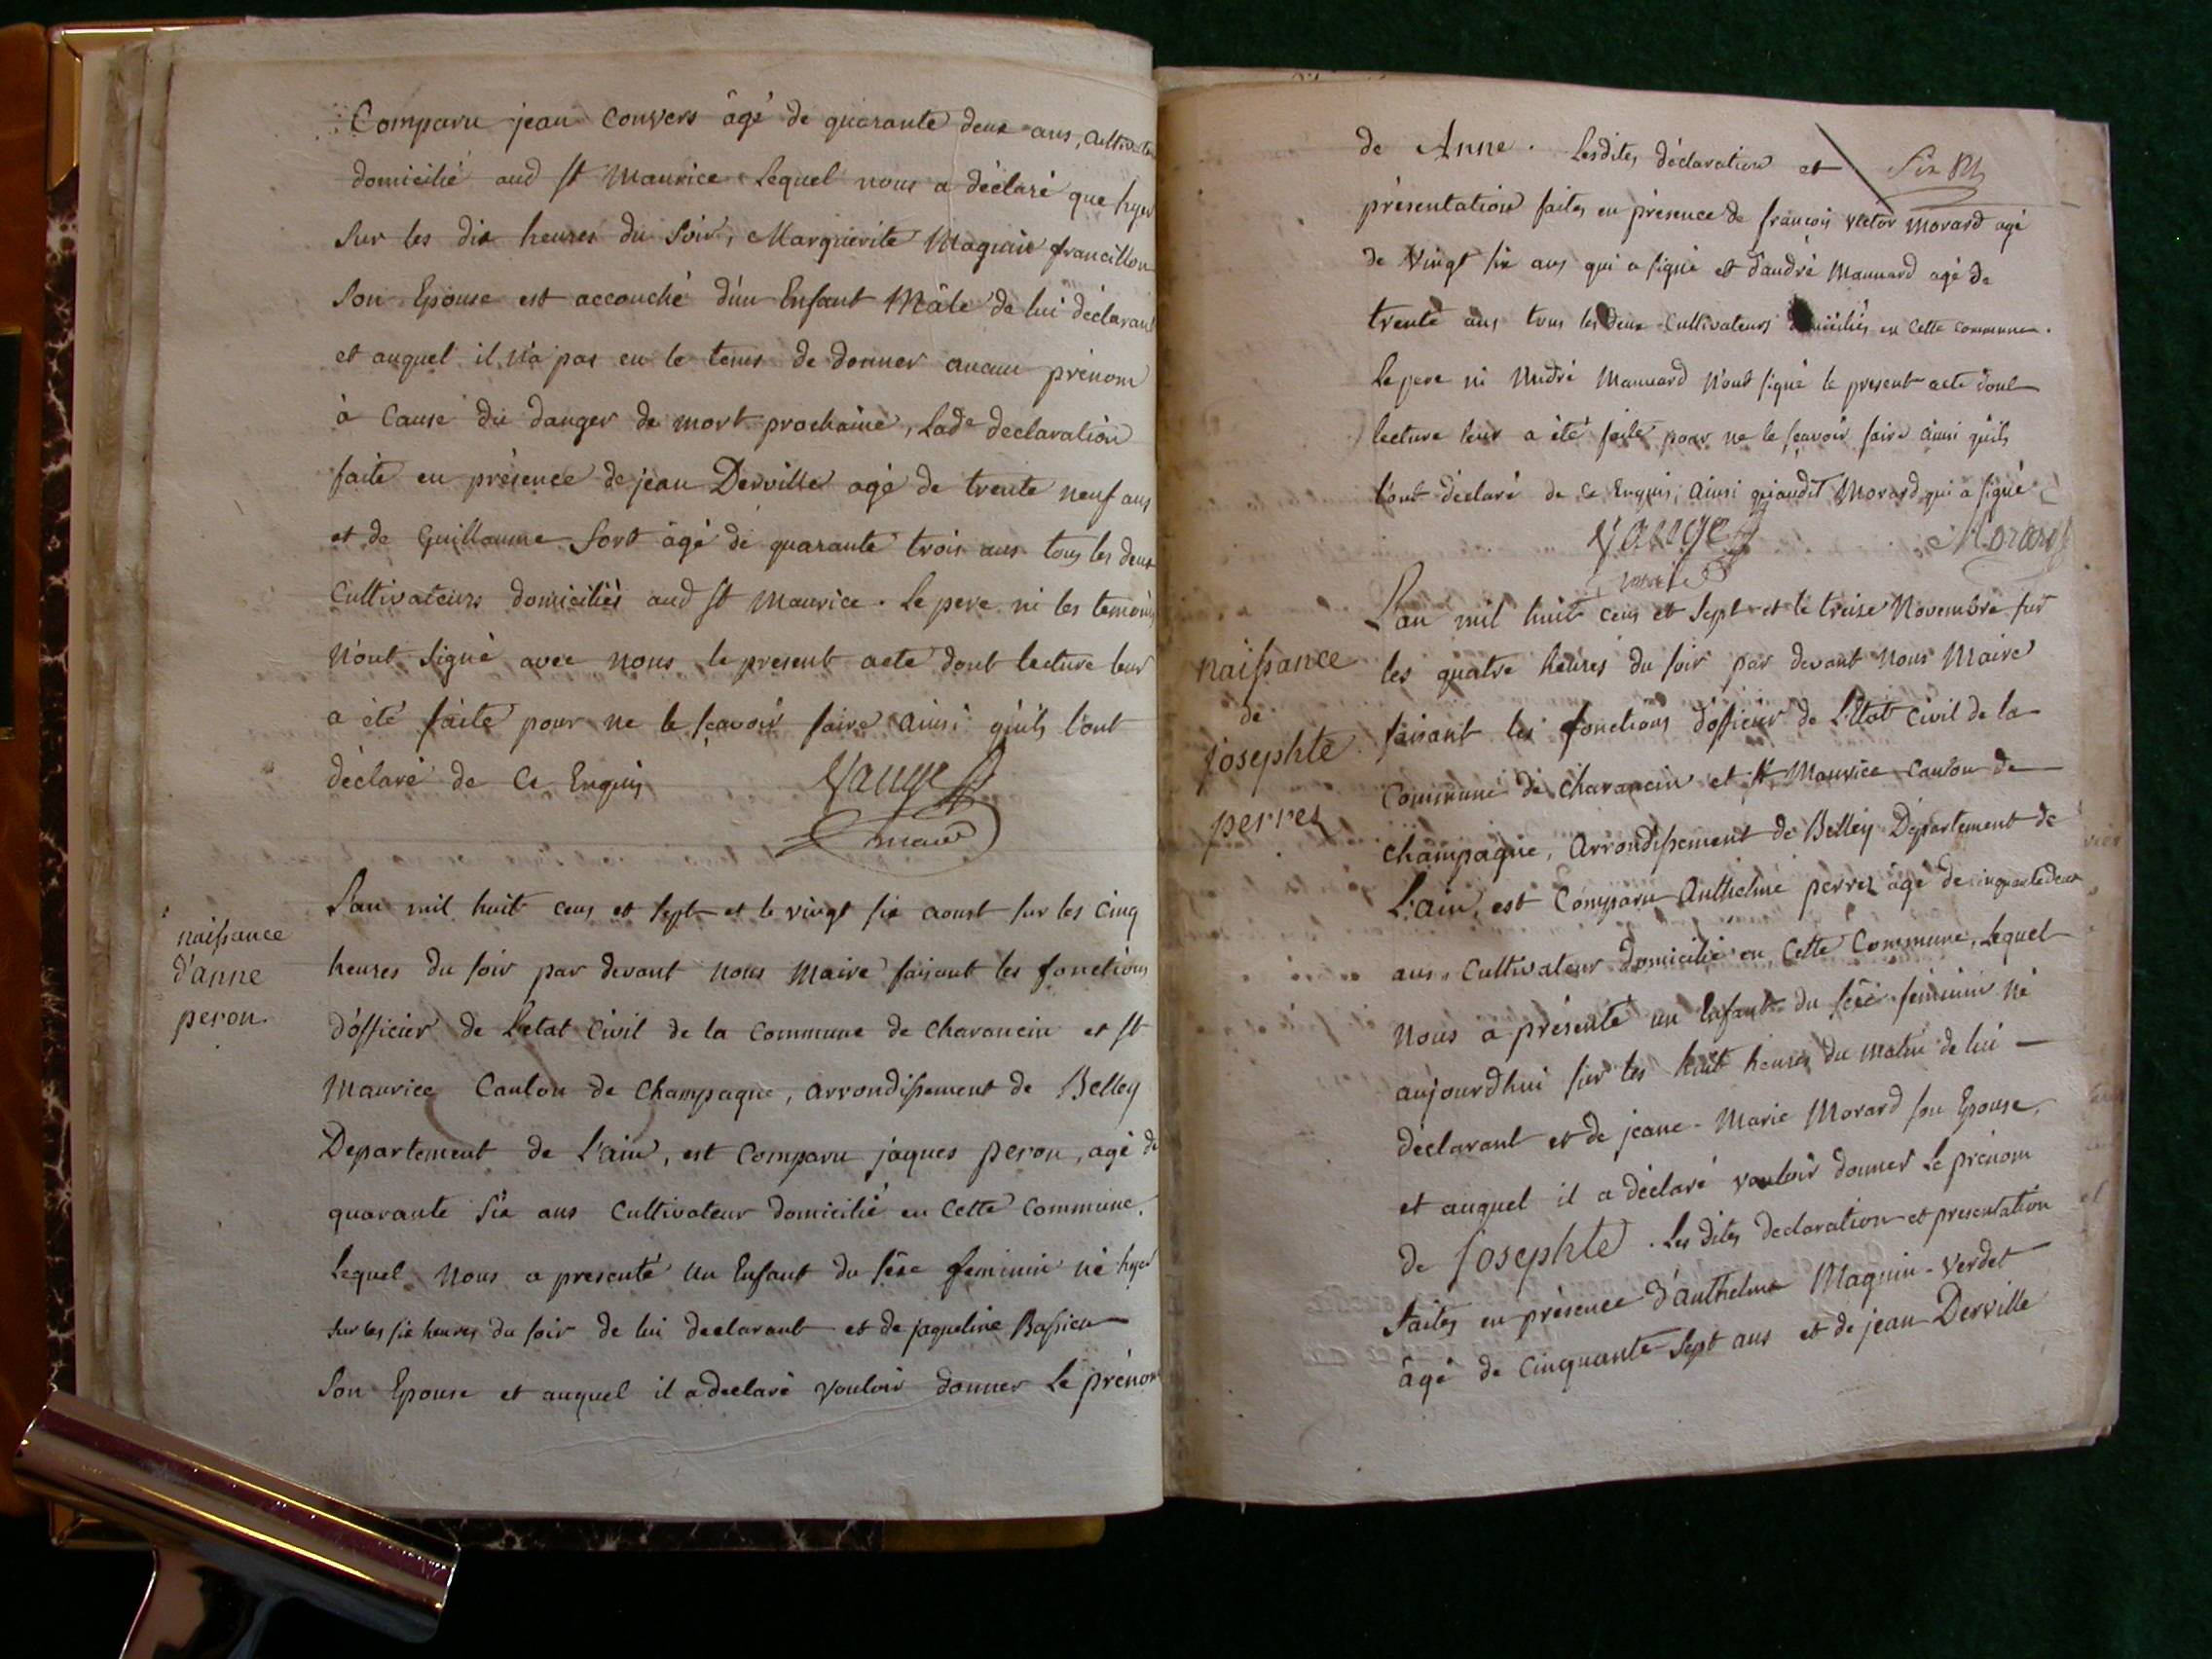 Comparu jean Convers âgé de quarante deux ans, cultivateur
domicilié aud St Maurice Lequel nous a déclaré que hyer
sur les dix heures du Soir, Marguerite Magnin francillon
Son Epouse est accouché d'un Enfant Mâle de lui déclarant
et auquel il n'a pas eu le tems de donner aucun prénom
à Cause du danger de mort prochaine, Lade declaration
faite en présence de jean Derville agé de trente neuf ans
et de Guillaume Sort âgé de quarante trois ans tous les deux
Cultivateurs domiciliés aud St Maurice. Le pere ni les temoins
N'ont Signé avec nous le present acte dont lecture leur
a été faite pour ne le sçavoir faire ainsi qu'ils l'ont
déclaré de Ce Enquis
maire
naissance
d'anne
peron.
L'an mil huit cens et sept et le vingt six aoust sur les cinq
heures du soir par devant nous Maire faisant les fonctions
d'officier de L'etat Civil de la Commune de Charancin et St
Maurice Canton de Champagne, arrondissement de Belley
Departement de L'ain, est Comparu jaques peron, agé de
quarante Six ans Cultivateur domicilié en Cette Commune,
Lequel Nous a presenté un Enfant du séxe feminin né hyer
sur les six heures du soir de lui declarant et de jaqueline Bassieu
Son Epouse et auquel il a declaré vouloir donner Le prénom
de Anne. Lesdites déclaration et
présentation faites en présence de françois victor Morard agé
de Vingt six ans qui a signé et d'andré Mannard agé de
trente ans tous les deux Cultivateurs domiciliés en Cette Commune.
Le pere ni André Mannard N'ont signé le present acte dont
lecture leur a été faite pour ne le sçavoir faire ainsi qu'ils
l'ont déclaré de Ce Enquis, ainsi qu'audit Morard qui a signé
Morard
maire
naissance
de
Josephte
perret
L'an mil huit cens et Sept et le treize Novembre sur
les quatre heures du soir par devant Nous Maire
faisant les fonctions d'officier de L'Etat Civil de la
Commune de Charancin et St Maurice Canton de
Champagne, Arrondissement de Belley Département de
L'ain, est Comparu Anthelme perret âgé de cinquante deux
ans, Cultivateur domicilié en Cette Commune, Lequel
Nous a présenté un Enfant du séxe feminin né
aujourdhui sur les huit heures du matin de lui
déclarant et de jeane-Marie Morard son Epouse,
et auquel il a déclaré vouloir donner Le prénom
de Josephte. Les dites declaration et presentation
faites en présence d'anthelme Magnin-Verdet
âgé de Cinquante Sept ans et de jean Derville